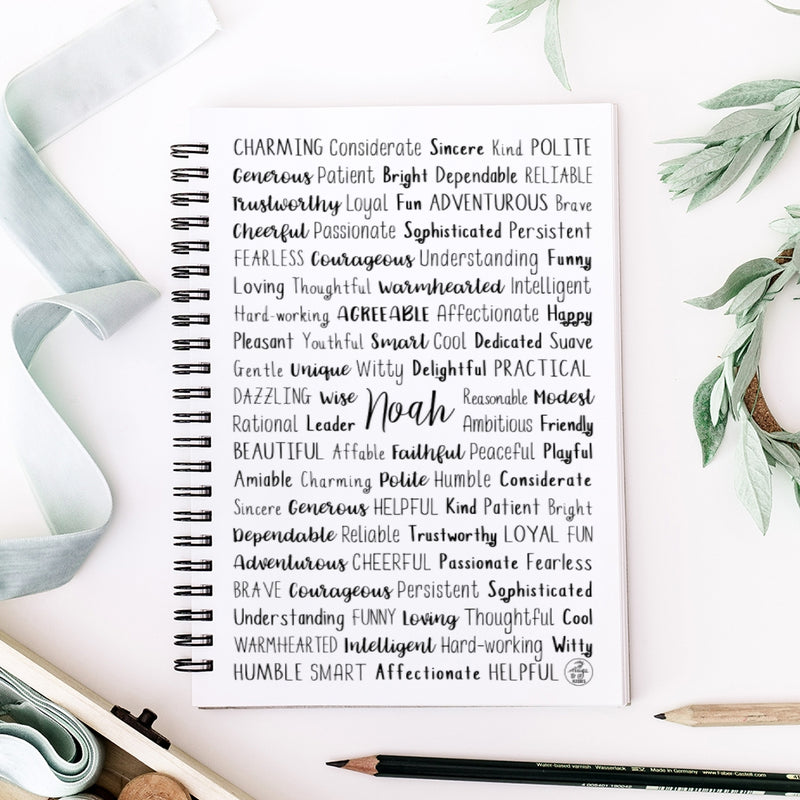 CHARMING Considerate Sincere Kind POLITE
Generous Patient Bright Dependable RELIABLE
Trustworthy Loyal Fun ADVENTUROUS Brave
Cheerful Passionate Sophisticated Persistent
FEARLESS Courageous Understanding Funny
Loving Thoughtful Warmhearted Intelligent
Hard-working AGREEABLE Affectionate Happy
Pleasant Youthful Smart Cool Dedicated Suave
Gentle Unique Witty Delightful PRACTICAL
DAZZLING Wise Reasonable Modest
Noah
Rational Leader Ambitious Friendly
BEAUTIFUL Affable Faithful Peaceful Playful
Amiable Charming Polite Humble Considerate
Sincere Generous HELPFUL Kind Patient Bright
Dependable Reliable Trustworthy LOYAL FUN
Adventurous CHEERFUL Passionate Fearless
BRAVE Courageous Persistent Sophisticated
Understanding FUNNY Loving Thoughtful Cool
WARMHEARTED Intelligent Hard-working Witty
HUMBLE SMART Affectionate HELPFUL
Water-based varnish Wasserlack Made in Germany www.Faber-Castell.com